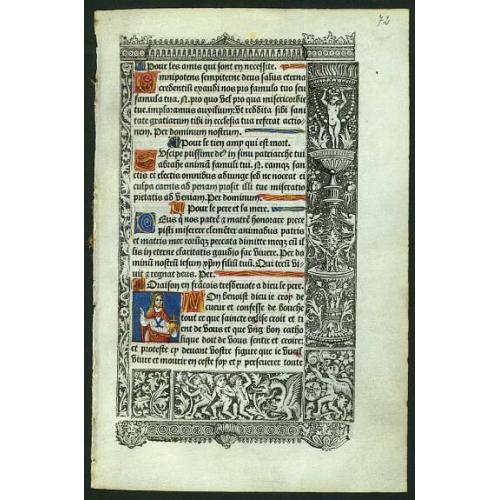 72
Pour les amis qui sont en necessite.
Omnipotens sempiterne deus salus eterna
credentiū exaudi nos pro famulo tuo seu
famula tua. N. pro quo vel pro qua misericordie
tue imploramus auxilium: vt reddita sibi sani
tate gratiarum tibi in ecclesia tua referat actio
nem. Per dominum nostrum.
Pour le tien amy qui est mort.
Suscipe piissime de⁹ in sinu patriarche tui
abrahe animā famuli tui. N. eamq; san
ctis et electis omnibus adiunge: sed ne noceat ei
culpa carnis ad penam: prosit illi tue miseratio
pietatis ad veniam. Per dominum.
Pour le pere et la mere.
Deus q nos patrē & matrē honorare prece
pisti miserere clemēter animabus patris
et matris mee eorūq; peccata dimitte meq; cū il
lis in eterne claritatis gaudio fac vivere. Per do
minū nostrū iesum xp̄m filiū tuū. Qui tecū vi
uit & regnat deus. Per.
Oraison en frācois tresdeuote a dieu le pere.
Mon benoist dieu ie croy de
cueur et confesse de bouche
tout ce que saincte eglise croit et ti
ent de vous et que vng bon catho
lique doit de vous sentir et croire:
et proteste cy deuant vostre figure que ie vueil
viure et mourir en ceste foy et y perseuerer toute